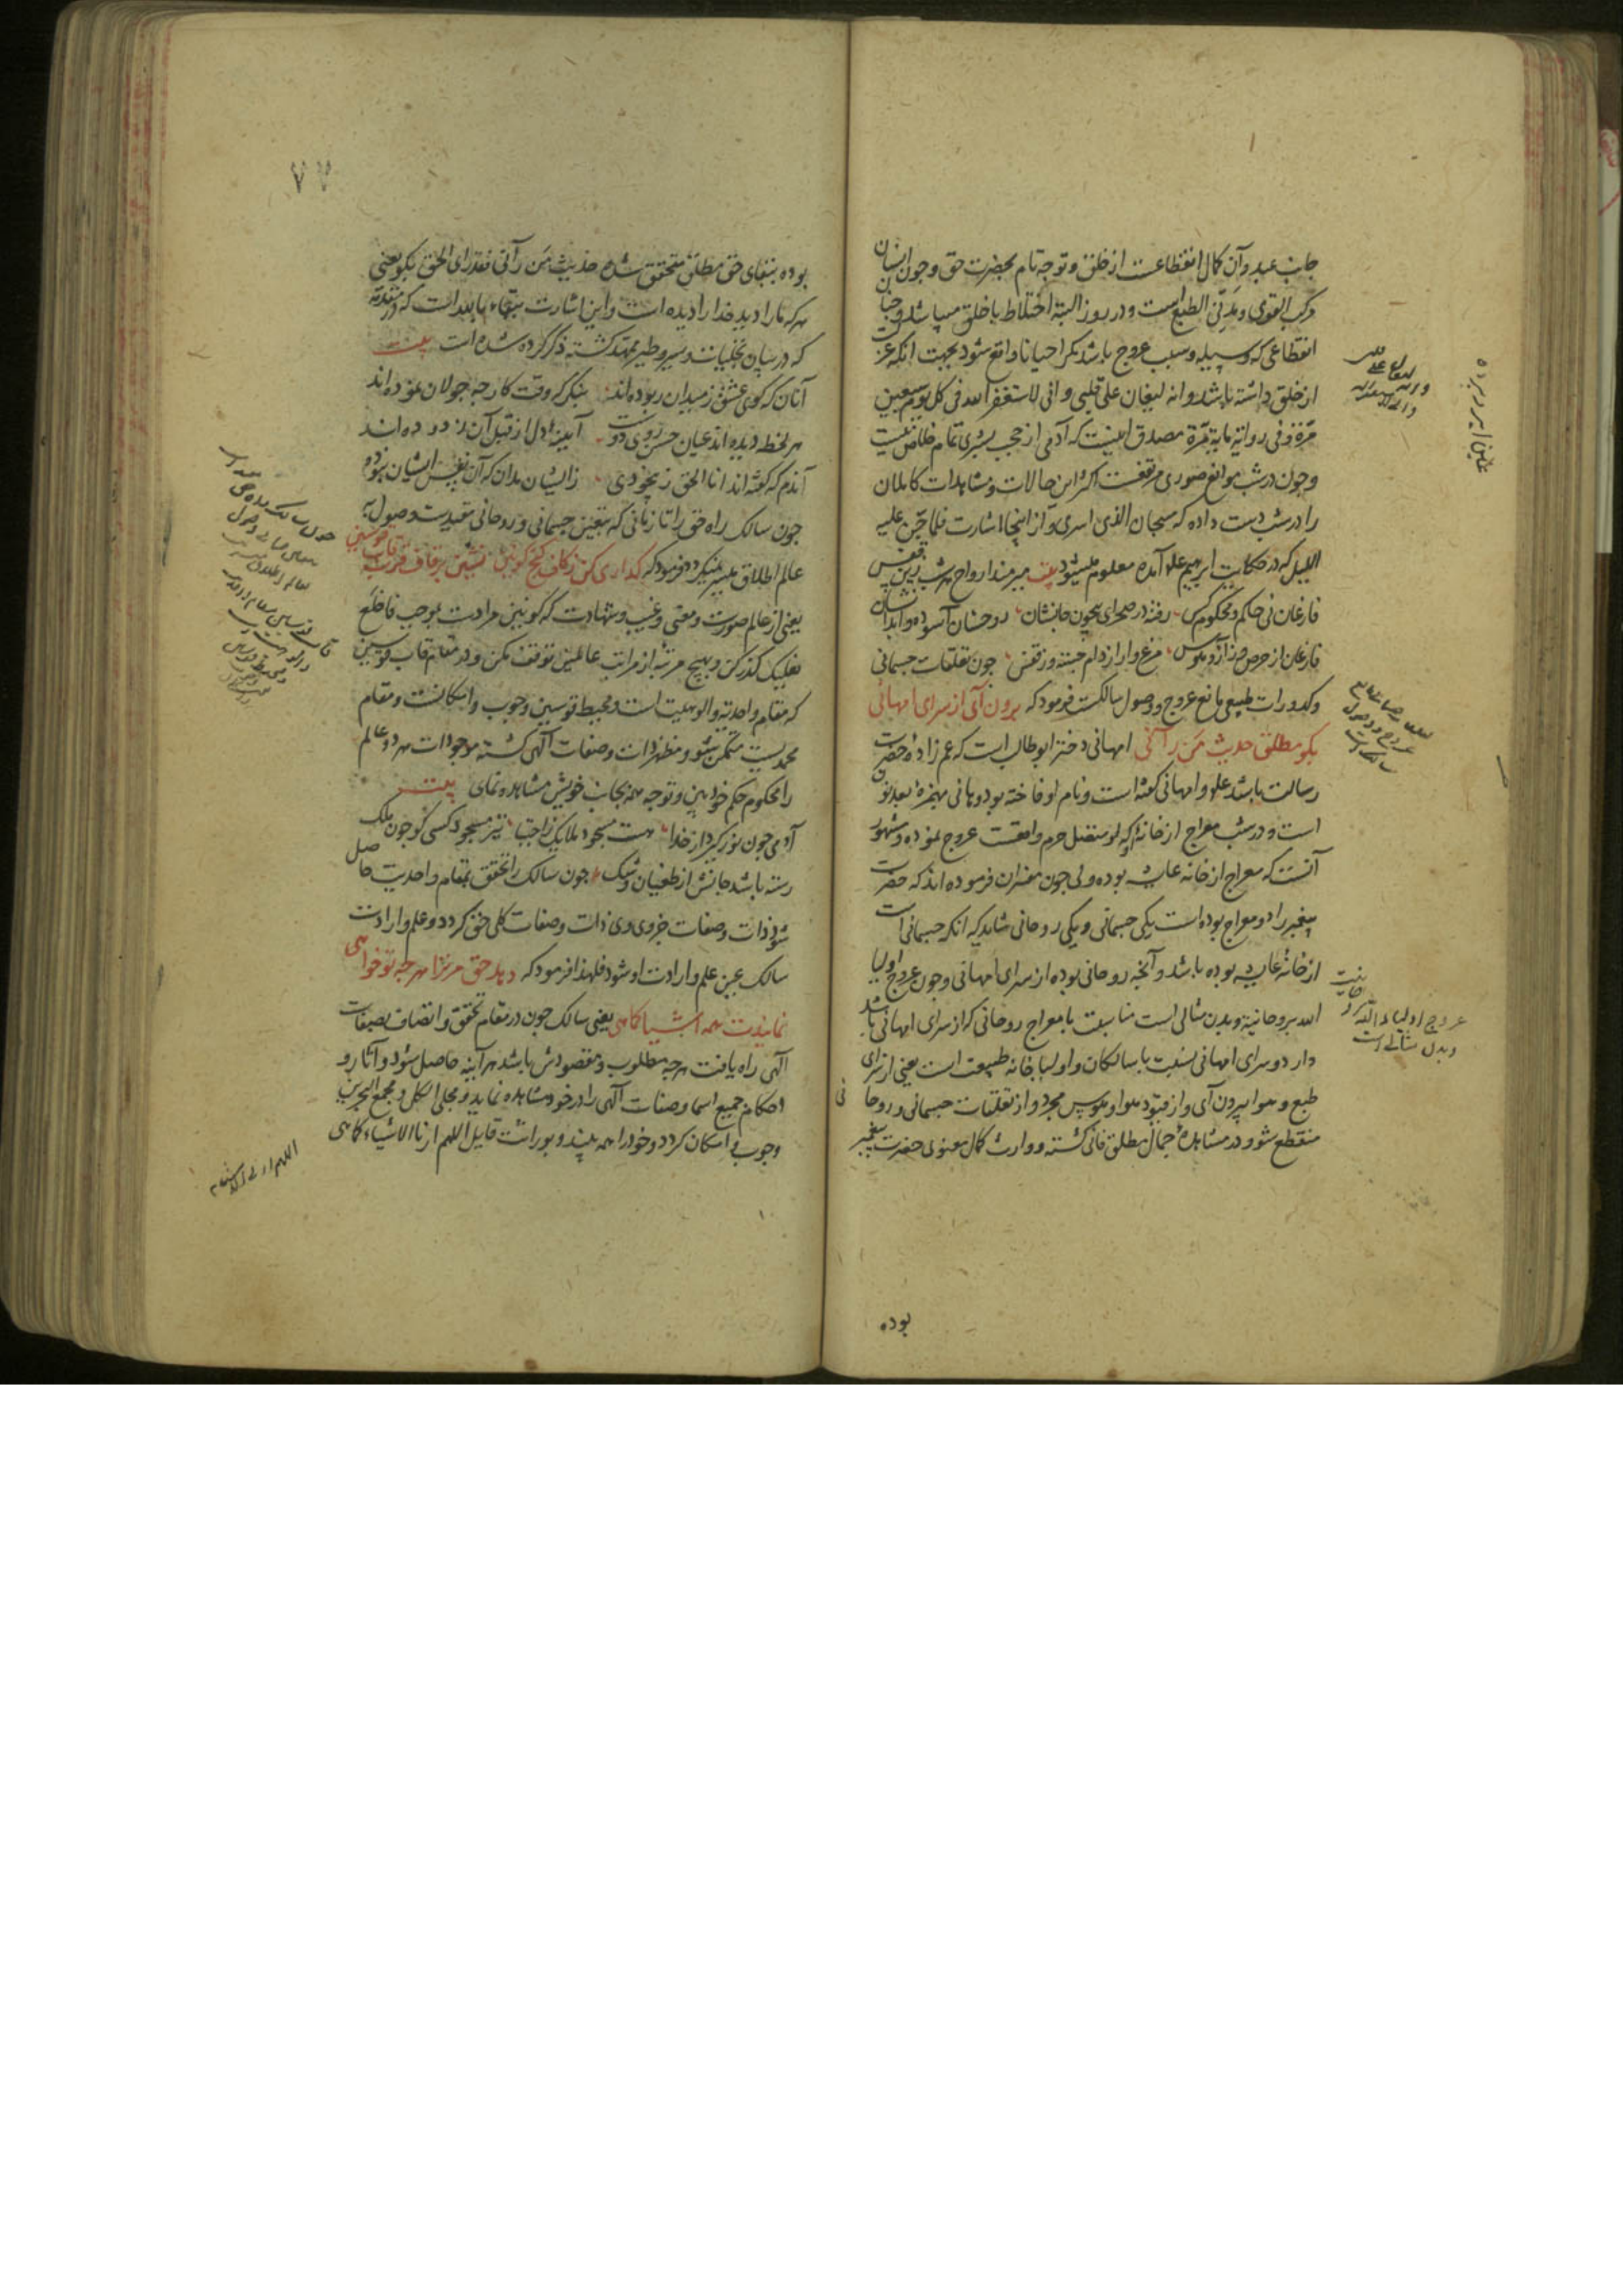 جانب عبد و آن کمال انقطاعست از خلق و توجه تام بحضرت حق و چون انسان
مرکب القوی و مدنی الطبع است و در روز البته اختلاط با خلق میباشد و چنان
انقطاعی که وسیله و سبب عروج باشد مکر احیانا واقع شود بجهت آنکه عزلت
از خلق داشته باشد و انه لیغان علی قلبی و انی لاستغفر الله فی کل یوم سبعین
مرّة و فی روایة مایة مرّة مصدق اینست که آدمی از حجب بشری تمام خلاص نیست
و چون در شب موانع صوری مرتفعست اکثر این حالات و مشاهدات کاملان
را در شب دست داده که سبحان الذی اسری و از اینجا اشارت فلما جنّ علیه
اللیل که در حکایت ابرهیم علم آمده معلوم میشود بیت میرهند ارواح هر شب زین قفس
فارغان نی حاکم و محکوم کس رفته در صحرای بیچون جانشان روحشان آسوده و ابدانشان
فارغان از حرص و آز و هوس مرغ وار از دام جسته وز قفس چون تعلقات جسمانی
و کدورات طبیعی مانع عروج و وصول سالکست فرمود که برون آی از سرای امهانی
بکو مطلق حدیث مَن رآنی امهانی دختر ابو طالب است که عم زادهٔ حضرت
رسالت باشد علم و امهانی کفته است و نام او فاخته بود و هانی بهمزه بعد نون
است و در شب معراج از خانهٔ او که متصل حرم واقعست عروج نموده و مشهور
آنست که معراج از خانه عایشه بوده ولی چون مفسران فرموده اند که حضرت
پیغمبر را دو معراج بوده است یکی جسمانی و یکی روحانی شاید که آنکه جسمانی است
از خانهٔ عایشه بوده باشد و آنچه روحانی بوده از سرای امهانی و چون عروج اولیا
الله بروحانیة و بدن مثالی است مناسبت با معراج روحانی که از سرای امهانی باشد
دارد و سرای امهانی نسبت با سالکان و اولیا خانه طبیعت است یعنی از سرای
طبع و هوا بیرون آی و از قیود هوا و هوس مجرد و از تعلقات جسمانی و روحانی
منقطع شو و در مشاهدهٔ جمال مطلق فانی کشته و وارث کمال معنوی حضرت پیغمبر
بوده
عروج اولیاء الله بروحانیت
و بدن مثالی است
۷۷
بوده ببقای حق مطلق متحقق شده حدیث مَن رآنی فقد رای الحق بکو یعنی
هر که ما را دید خدا را دیده است و این اشارت ببقاء بالله است که در مقدمه
که در بیان تجلیات و سیر و طیر ممهد کشته ذکر کرده شده است بیت
آنان که کوی عشق ز میدان ربوده اند بنکر که وقت کار چه جولان نموده اند
هر لحظه دیده اند عیان حسن روی دوست آیینهٔ دل از قبل آن زدوده اند
آندم که کفته اند انا الحق ز بیخودی ز ایشان مدان که آن نفس ایشان نبوده
چون سالک راه حق را تا زمانی که بتعین جسمانی و روحانی مقیدست وصول به
عالم اطلاق میسر نمیکردد فرمود که کذاری کن ز کاف کنج کونین نشین بر قاف قرب قاب قوسین
یعنی از عالم صورت و معنی و غیب و شهادت که کونین مرادست بموجب فاخلع
نعلیک کذر کن و بهیچ مرتبه از مراتب عالمین توقف مکن و در مقام قاب قوسین
که مقام واحدیه و الوهیت است و محیط قوسین وجوب و امکانست و مقام
محمدیست متمکن شو و مظهر ذات و صفات الهی کشته موجودات هر دو عالم
را محکوم حکم خود بین و توجه همه بجانب خویش مشاهده نمای بیت
آدمی چون نور کیرد از خدا هست مسجود ملایک ز اجتبا نیز مسجود کسی کو چون ملک
رسته باشد جانش از طغیان و شک چون سالک را تحقق بمقام واحدیت حاصل
شود ذات و صفات جزوی وی ذات و صفات کلی حق کردد و علم و ارادت
سالک عین علم و ارادت او شود فلهذا فرمود که دهد حق مر ترا هر چه تو خواهی
نمایندت همه اشیا کماهی یعنی سالک چون در مقام تحقق و اتصاف بصفات
الهی راه یافت هر چه مطلوب و مقصودش باشد هر آینه حاصل شود و آثار و
احکام جمیع اسما و صفات الهی را در خود مشاهده نماید و مجلی الکل و مجمع البحرین
وجوب و امکان کردد و خود را همه بیند و بوراثت قایل اللهم ارنا الاشیاء کماهی